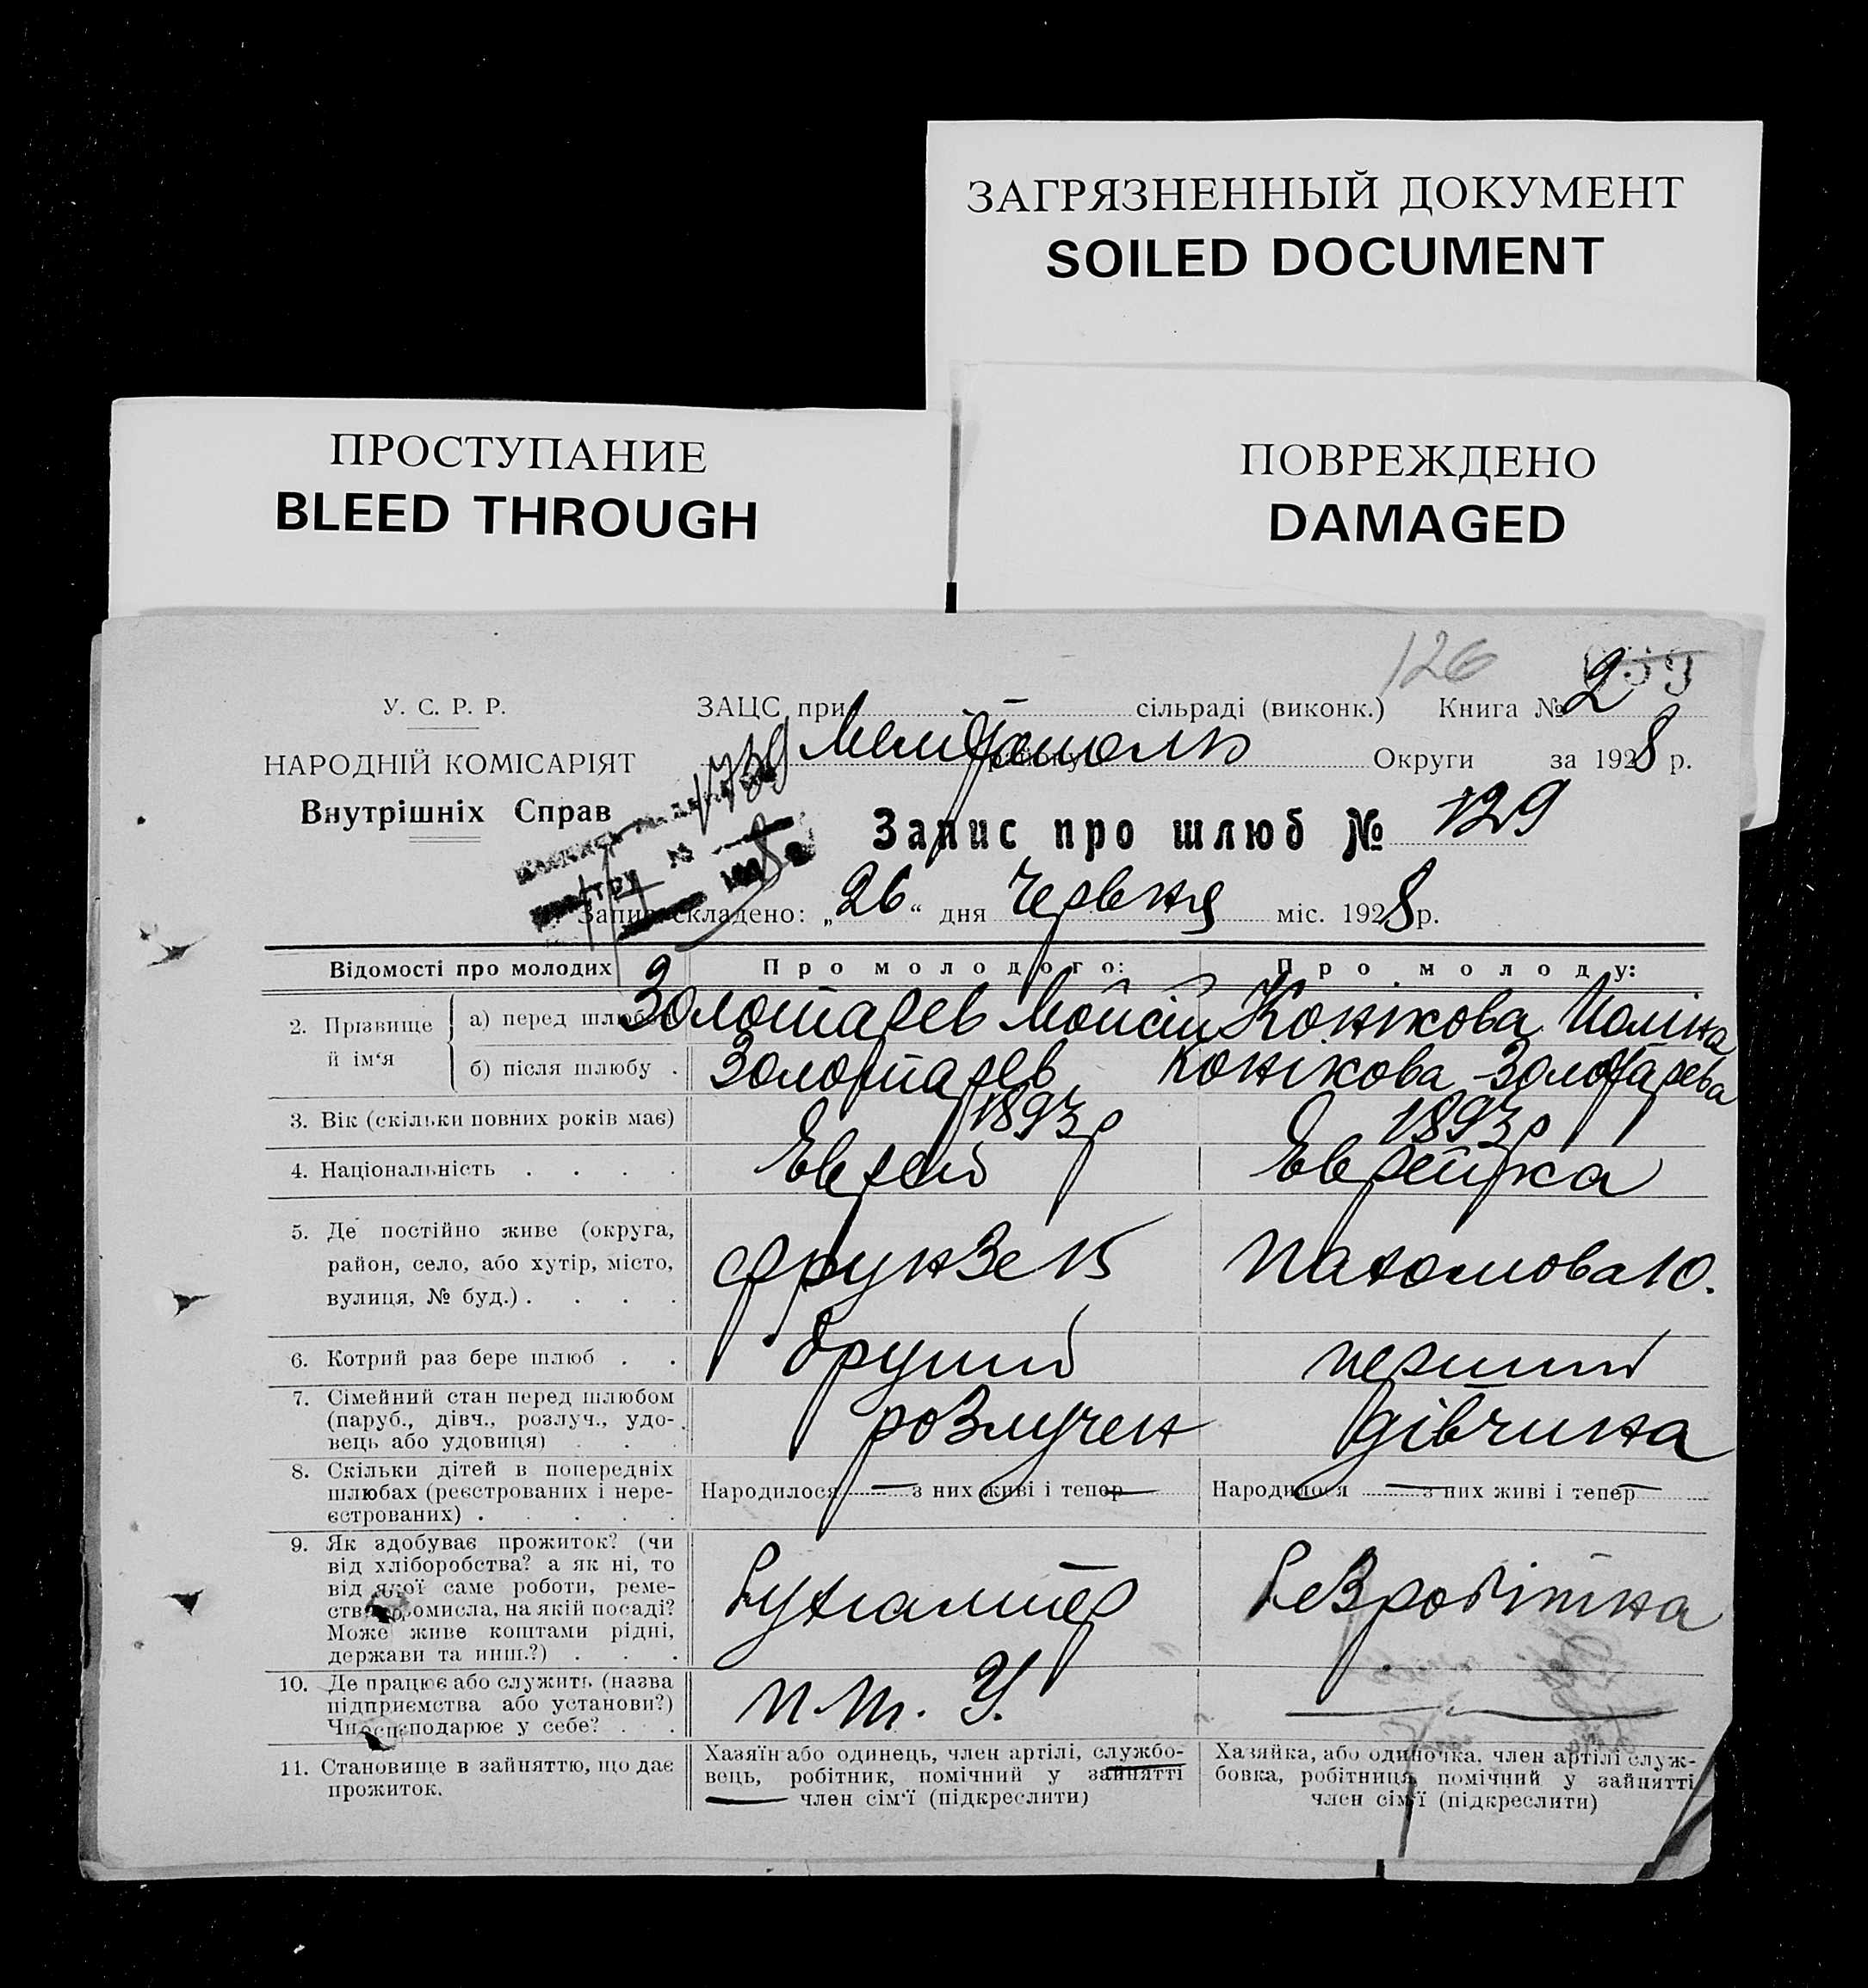 ЗАГРЯЗНЕННЫЙ ДОКУМЕНТ
SOILED DOCUMENT
ПРОСТУПАНИЕ
BLEED THROUGH
ПОВРЕЖДЕНО
DAMAGED
126
У. С. Р. Р.
ЗАЦС при сільраді (виконк.) Книга № 2
НАРОДНІЙ КОМІСАРІЯТ
Округи за 1928 р.
Внутрішніх Справ
Запис про шлюб № 129
Запис складено: „26“ дня Червня міс. 1928 р.
Відомості про молодих
Про молодого:
Про молоду:
2. Прізвище й ім'я
а) перед шлюбом Золотарев Мойсій Конікова Поліна
б) після шлюбу . Золотарев Конікова-Золотарева
3. Вік (скільки повних років має) 1893 р 1893 р
4. Національність . . . . Еврей Еврейка
5. Де постійно живе (округа,
район, село, або хутір, місто,
вулиця, № буд.) . . . .
Фрунзе 15
10.
6. Котрий раз бере шлюб . . другий перший
7. Сімейний стан перед шлюбом
(паруб., дівч., розлуч., удо-
вець або удовиця) . . .
розлучен
дівчина
8. Скільки дітей в попередніх
шлюбах (реєстрованих і нере-
єстрованих) . . . . .
Народилося — з них живі і тепер —
Народилося — з них живі і тепер —
9. Як здобуває прожиток? (чи
від хліборобства? а як ні, то
від якої саме роботи, реме-
ства, промисла, на якій посаді?
Може живе коштами рідні,
держави та инш.?) . . .
Бухгалтер
Безробітна
10. Де працює або служить (назва
підприємства або установи?)
Чи господарює у себе? . . .
П. Т. У.
—
11. Становище в зайняттю, що дає
прожиток.
Хазяїн або одинець, член артілі, службо-
вець, робітник, помічний у зайнятті
член сім'ї (підкреслити)
Хазяйка, або одиночка, член артілі служ-
бовка, робітниця, помічний у зайнятті
член сім'ї (підкреслити)